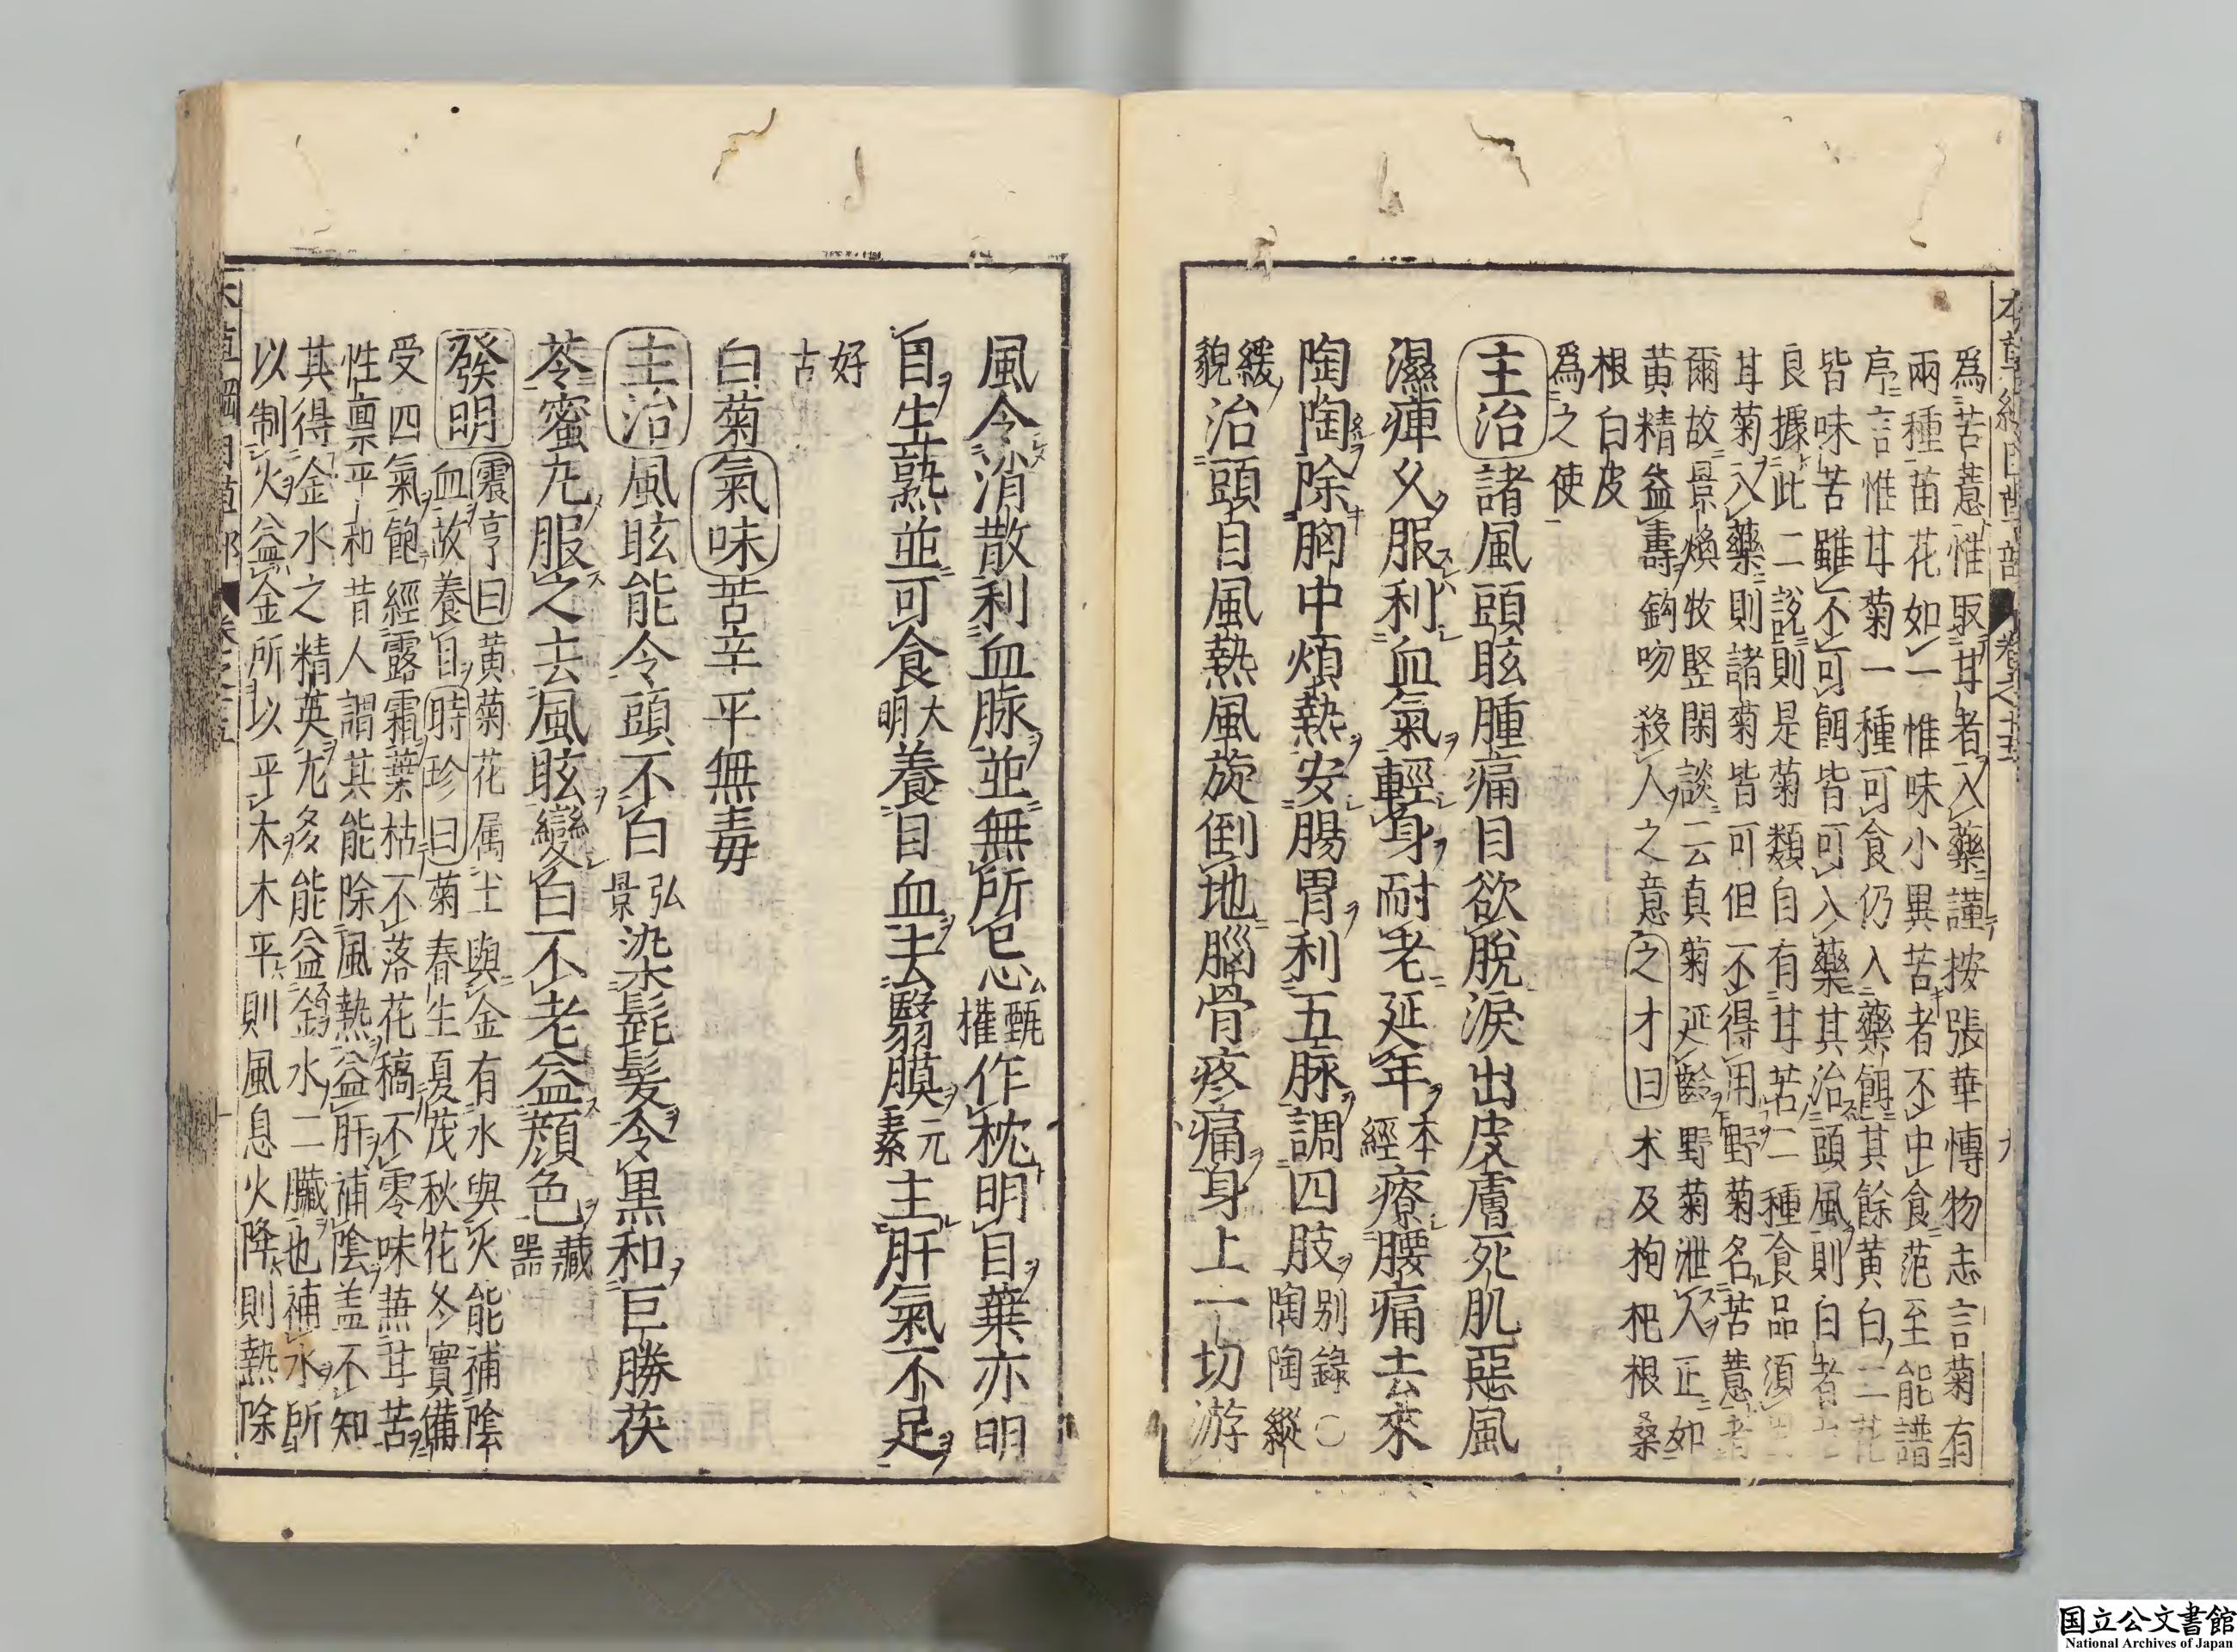 爲苦薏惟取甘者入藥謹按張華慱物志言菊有
兩種苗花如一惟味小異苦者不中食范至能譜
序言惟甘菊一種可食仍入藥餌其餘黄白二花
皆味苦雖不可餌皆可入藥其治頭風則白者
良據此二說則是菊類自有甘苦二種食品須
甘菊入藥則諸菊皆可但不得用野菊名苦薏者
爾故景煥牧竪閑談云真菊延齡野菊泄人正如
黄精益壽鈎吻殺人之意之才曰朮及枸杷根桑
根白皮
爲之使
主治諸風頭眩腫痛目欲脫淚出皮膚死肌惡風
濕痺久服利血氣輕身耐老延年本經療腰痛去來
陶陶除胸中煩熱安腸胃利五脉調四肢别錄〇陶陶縱
緩貌治頭目風熱風旋倒地腦骨疼痛身上一切游
風令消散利血脉並無所忌甄權作枕明目葉亦明
目生熟並可食大明養目血去翳膜元素主肝氣不足
好
古
白菊氣味苦辛平無毒
主治風眩能令頭不白弘景染髭髪令黒和巨勝茯
苓蜜丸服之去風眩變白不老益顔色藏器
發明震亨曰黄菊花属土與金有水與火能補陰
血故養目時珍曰菊春生夏茂秋花冬實備
受四氣飽經露霜葉枯不落花槁不零味蕪甘苦
性禀平和昔人謂其能除風熱益肝補陰盖不知
其得金水之精英尤多能益金水二臟也補水所
以制火益金所以平木木平則風息火降則熱除
国立公文書館
National Archives of Japan